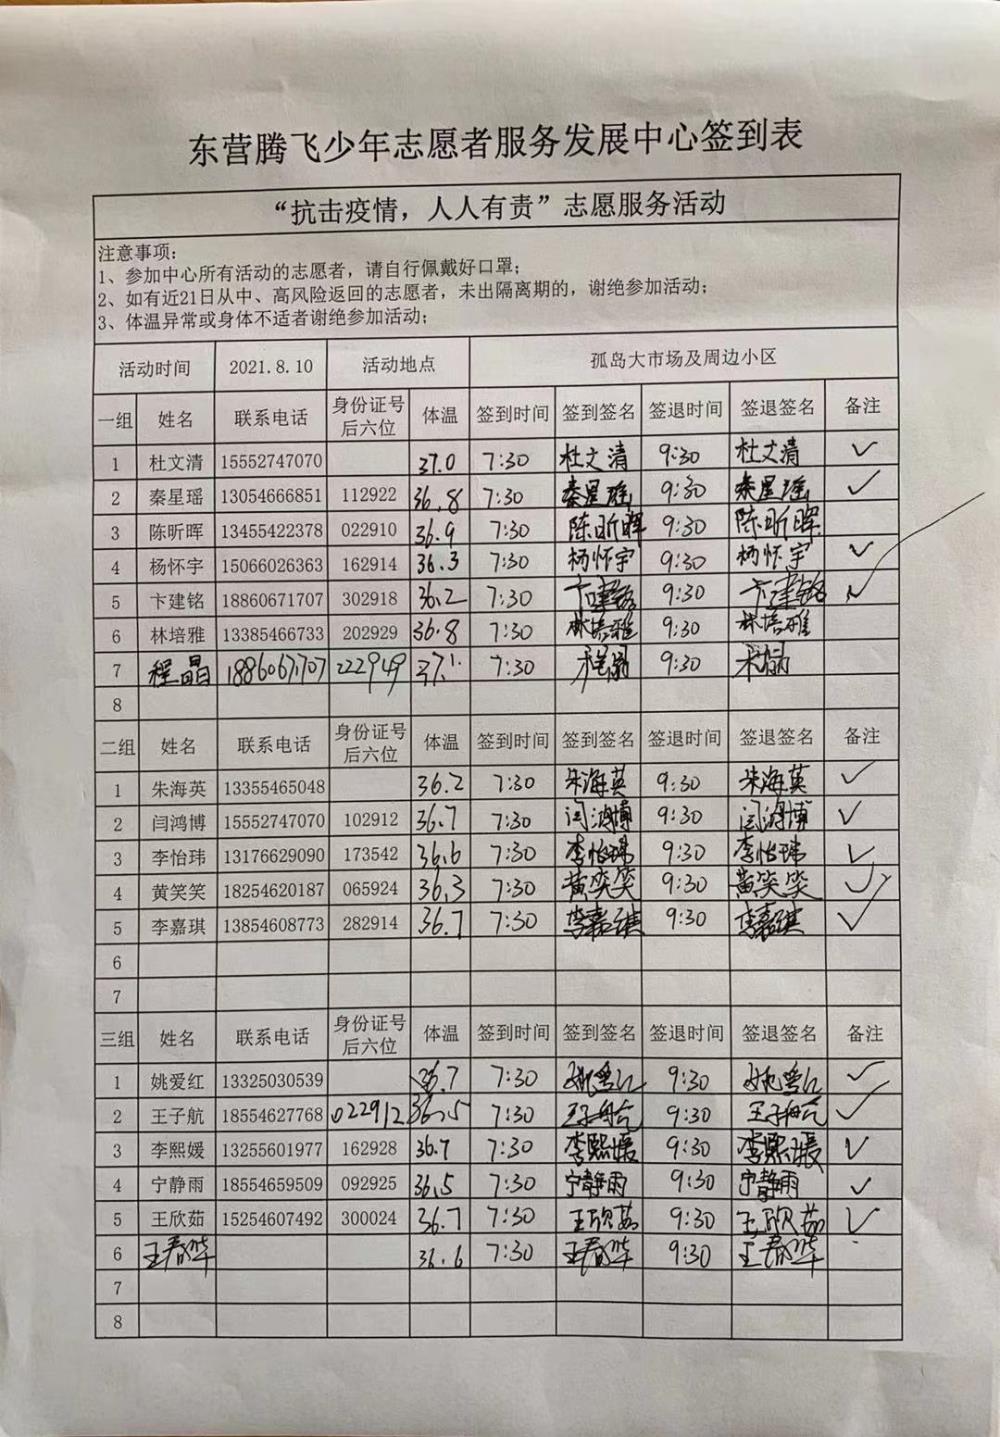 东营腾飞少年志愿者服务发展中心签到表
“抗击疫情，人人有责”志愿服务活动
注意事项：
1、参加中心所有活动的志愿者，请自行佩戴好口罩；
2、如有近21日从中、高风险返回的志愿者，未出隔离期的，谢绝参加活动；
3、体温异常或身体不适者谢绝参加活动；
活动时间 2021.8.10 活动地点 孤岛大市场及周边小区
一组 姓名 联系电话 身份证号后六位 体温 签到时间 签到签名 签退时间 签退签名 备注
1 杜文清 15552747070 37.0 7:30 杜文清 9:30 杜文清 ✓
2 秦星瑶 13054666851 112922 36.8 7:30 秦星瑶 9:30 秦星瑶 ✓
3 陈昕晖 13455422378 022910 36.9 7:30 陈昕晖 9:30 陈昕晖
4 杨怀宇 15066026363 162914 36.3 7:30 杨怀宇 9:30 杨怀宇 ✓
5 卞建铭 18860671707 302918 36.2 7:30 卞建铭 9:30 卞建铭 ✓
6 林培雅 13385466733 202929 36.8 7:30 林培雅 9:30 林培雅
7 程晶 18860671707 222949 37.1 7:30 程晶 9:30
8
二组 姓名 联系电话 身份证号后六位 体温 签到时间 签到签名 签退时间 签退签名 备注
1 朱海英 13355465048 36.2 7:30 朱海英 9:30 朱海英 ✓
2 闫鸿博 15552747070 102912 36.7 7:30 闫鸿博 9:30 闫鸿博 ✓
3 李怡玮 13176629090 173542 36.6 7:30 李怡玮 9:30 李怡玮 ✓
4 黄笑笑 18254620187 065924 36.3 7:30 黄笑笑 9:30 黄笑笑 ✓
5 李嘉琪 13854608773 282914 36.7 7:30 李嘉琪 9:30 李嘉琪 ✓
6
7
三组 姓名 联系电话 身份证号后六位 体温 签到时间 签到签名 签退时间 签退签名 备注
1 姚爱红 13325030539 36.7 7:30 姚爱红 9:30 姚爱红 ✓
2 王子航 18554627768 022912 36.5 7:30 王子航 9:30 王子航 ✓
3 李熙媛 13255601977 162928 36.7 7:30 李熙媛 9:30 李熙媛 ✓
4 宁静雨 18554659509 092925 36.5 7:30 宁静雨 9:30 宁静雨 ✓
5 王欣茹 15254607492 300024 36.7 7:30 王欣茹 9:30 王欣茹 ✓
6 王春华 36.6 7:30 王春华 9:30 王春华
7
8